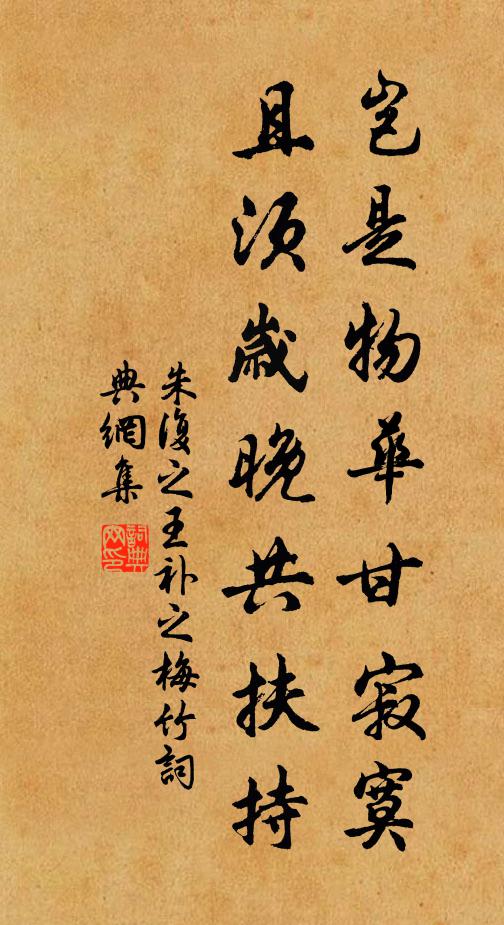 豈是物華甘寂寞
且須歲晚共扶持
朱復之王补之梅竹詞
典網集
詞典
网印